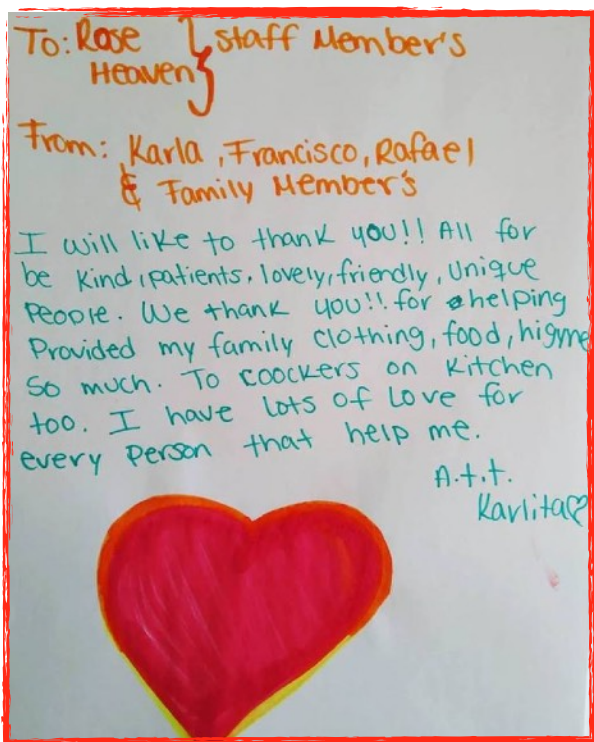 To: Rose } Staff Member's
Heaven
From: Karla, Francisco, Rafael
& Family Member's
I will like to thank you!! All for
be kind, patients, lovely, friendly, unique
People. We thank you!! for helping
Provided my family clothing, food, higyne
So much. To coockers on kitchen
too. I have lots of love for
every person that help me.
A.t.t.
Karlita♡